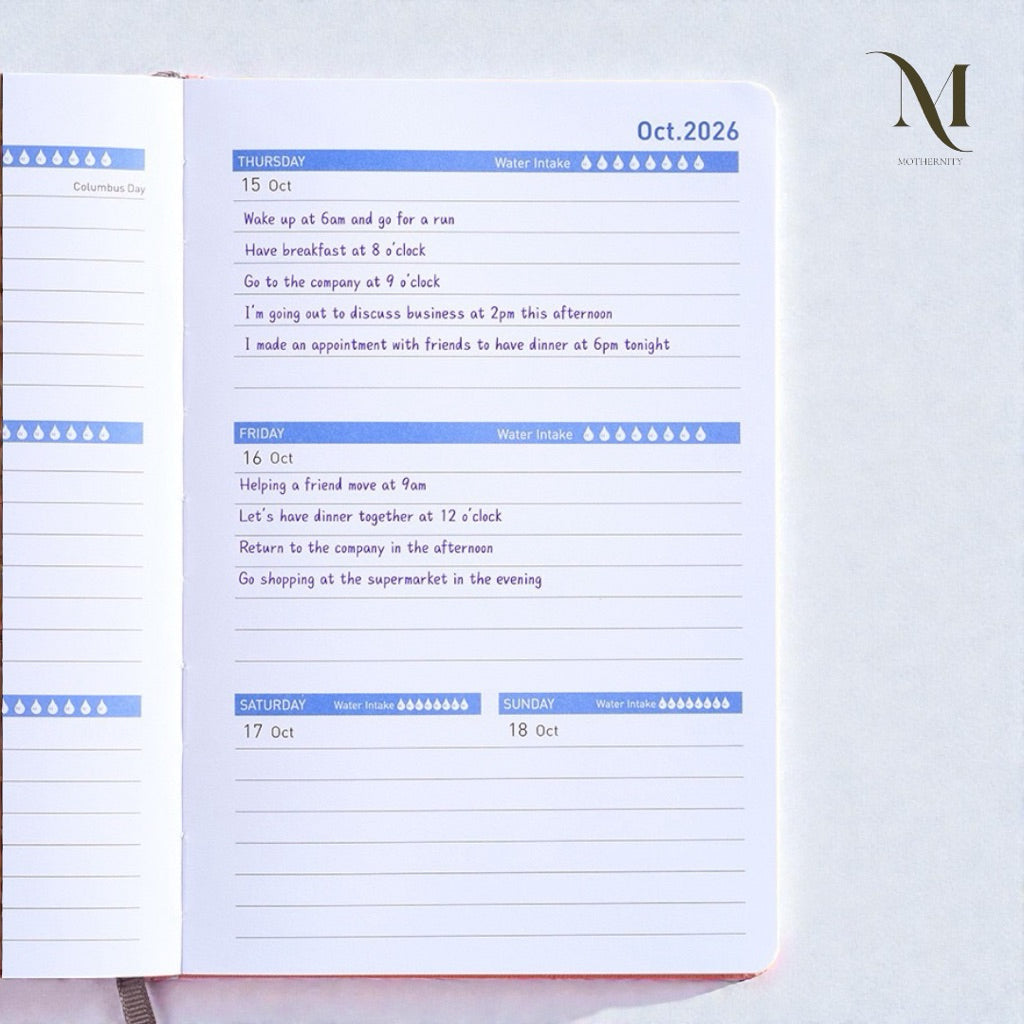 Columbus Day
Oct.2026
THURSDAY Water Intake
15 Oct
Wake up at 6am and go for a run
Have breakfast at 8 o'clock
Go to the company at 9 o'clock
I'm going out to discuss business at 2pm this afternoon
I made an appointment with friends to have dinner at 6pm tonight
FRIDAY Water Intake
16 Oct
Helping a friend move at 9am
Let's have dinner together at 12 o'clock
Return to the company in the afternoon
Go shopping at the supermarket in the evening
SATURDAY Water Intake
17 Oct
SUNDAY Water Intake
18 Oct
M
MOTHERNITY